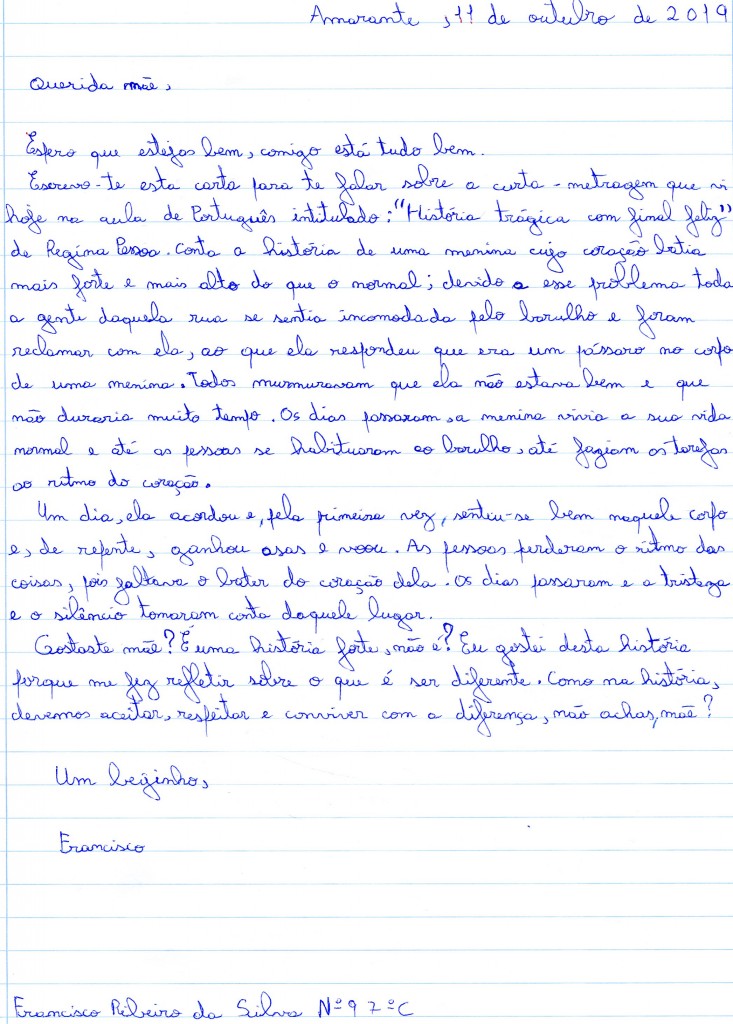 Amarante, 11 de outubro de 2019
Querida mãe,
Espero que estejas bem, comigo está tudo bem.
Escrevo-te esta carta para te falar sobre a curta-metragem que vi
hoje na aula de Português intitulado: "História trágica com final feliz"
de Regina Pessoa. Conta a história de uma menina cujo coração batia
mais forte e mais alto do que o normal; devido a esse problema toda
a gente daquela rua se sentia incomodada pelo barulho e foram
reclamar com ela, ao que ela respondeu que era um pássaro no corpo
de uma menina. Todos murmuravam que ela não estava bem e que
não duraria muito tempo. Os dias passaram, a menina vivia a sua vida
normal e até as pessoas se habituaram ao barulho, até faziam as tarefas
ao ritmo do coração.
Um dia, ela acordou e, pela primeira vez, sentiu-se bem naquele corpo
e, de repente, ganhou asas e voou. As pessoas perderam o ritmo das
coisas, pois faltava o bater do coração dela. Os dias passaram e a tristeza
e o silêncio tomaram conta daquele lugar.
Gostaste mãe? É uma história forte, não é? Eu gostei desta história
porque me fez refletir sobre o que é ser diferente. Como na história,
devemos aceitar, respeitar e conviver com a diferença, não achas, mãe?
Um beijinho,
Francisco
Francisco Ribeiro da Silva Nº9 7ºC